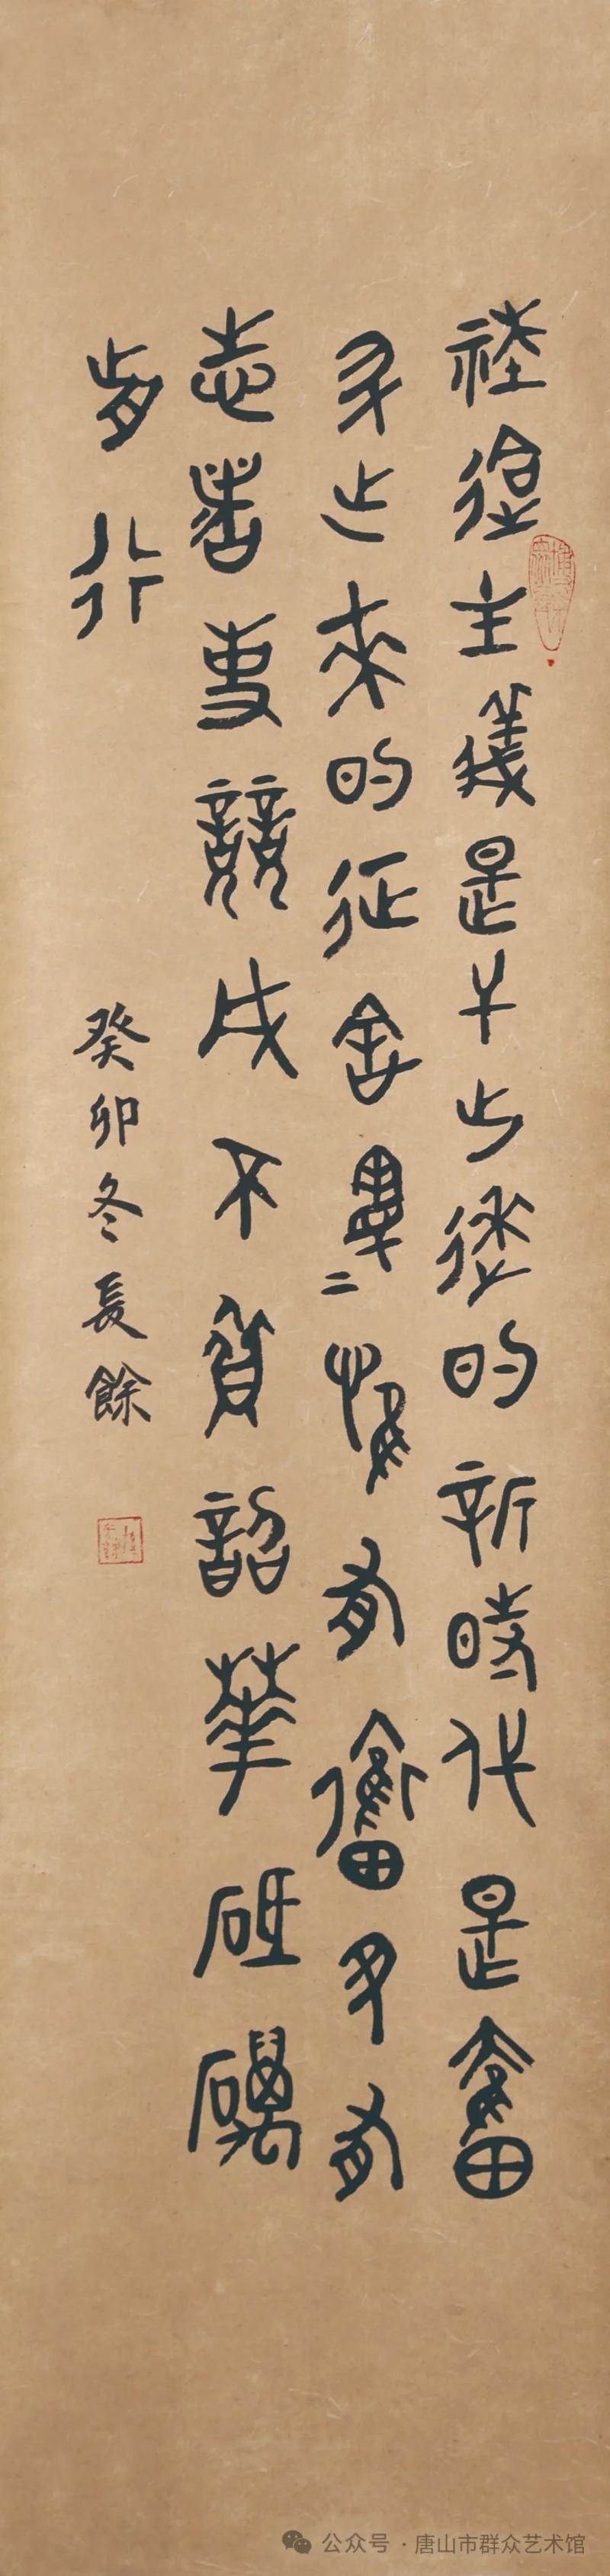 社會主義是干出來的新時代是奮
鬥出來的征途漫〻惟有奮鬥有
志者事競成不負韶華砥礪
前行
癸卯冬長餘
公众号·唐山市群众艺术馆